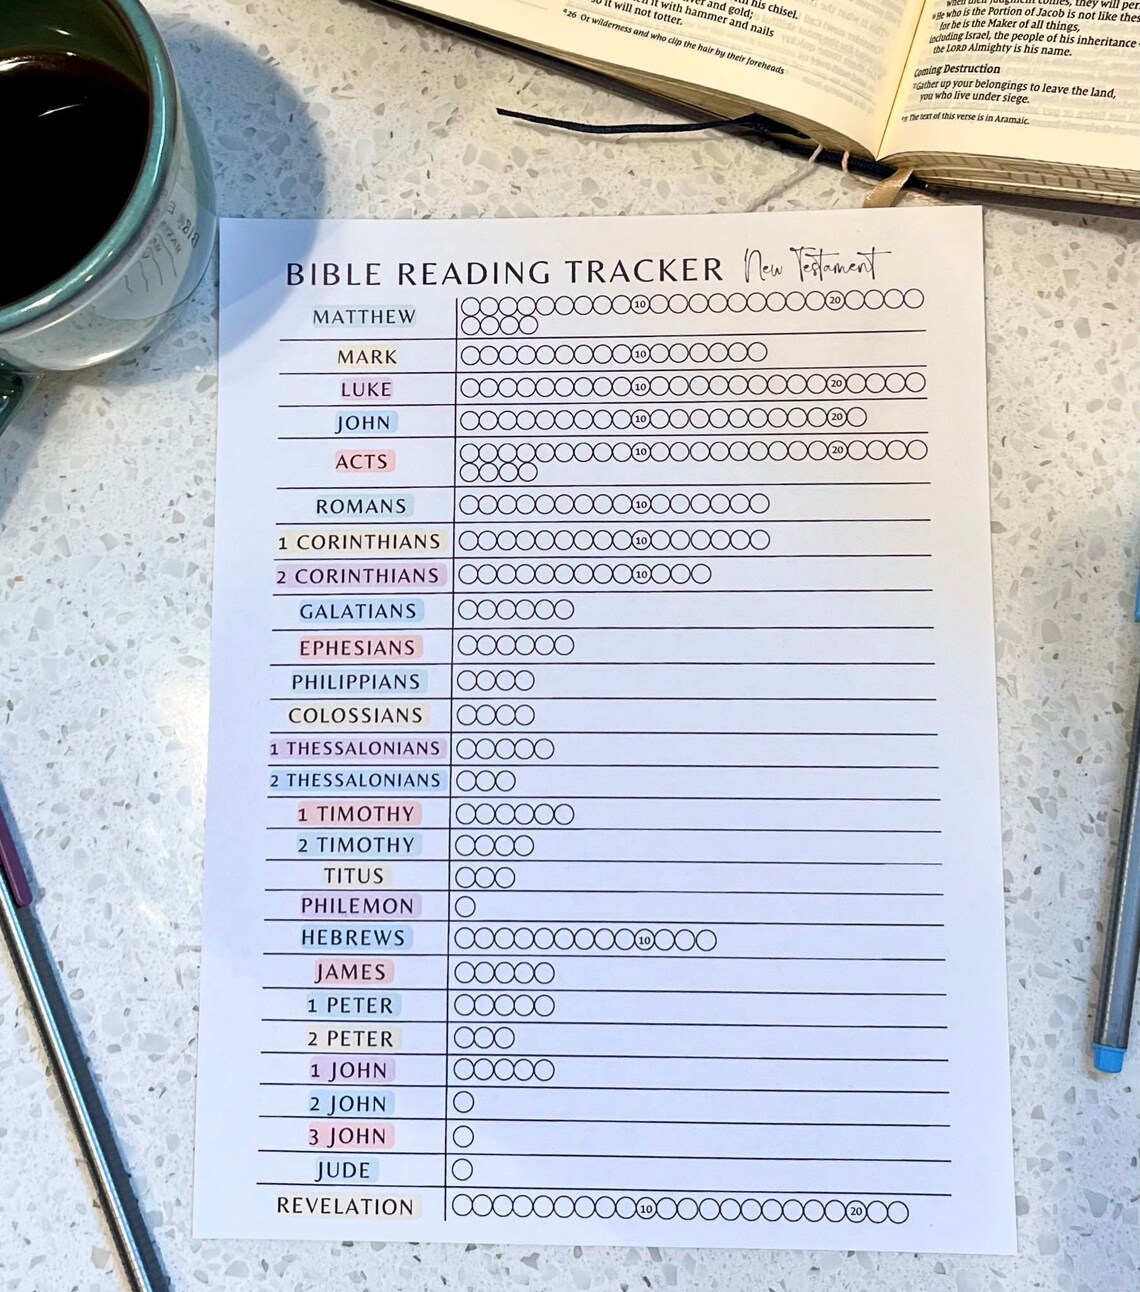 his chisel.
and gold;
it with hammer and nails
so it will not totter.
*26 Or wilderness and who clip the hair by their foreheads
when their judgment comes, they will
He who is the Portion of Jacob is not like
for he is the Maker of all things,
including Israel, the people of his inheritance
the LORD Almighty is his name.
Coming Destruction
Gather up your belongings to leave the land,
you who live under siege.
The text of this verse is in Aramaic.
BIBLE READING TRACKER New Testament
MATTHEW 10 20
MARK 10
LUKE 10 20
JOHN 10 20
ACTS 10 20
ROMANS 10
1 CORINTHIANS 10
2 CORINTHIANS 10
GALATIANS
EPHESIANS
PHILIPPIANS
COLOSSIANS
1 THESSALONIANS
2 THESSALONIANS
1 TIMOTHY
2 TIMOTHY
TITUS
PHILEMON
HEBREWS 10
JAMES
1 PETER
2 PETER
1 JOHN
2 JOHN
3 JOHN
JUDE
REVELATION 10 20